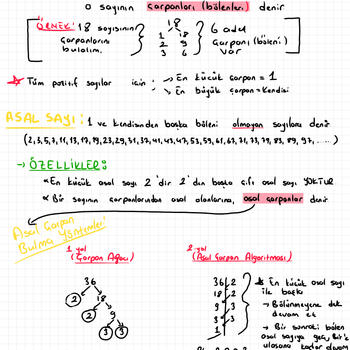 o sayının çarpanları (bölenleri) denir
ÖRNEK: 18 sayısının çarpanlarını bulalım.
18
1 18
2 9
3 6
6 adet çarpanı (böleni) var
Tüm pozitif sayılar için :→ En küçük çarpan = 1
→ En büyük çarpan = Kendisi
ASAL SAYI : 1 ve kendisinden başka böleni olmayan sayılara denir
(2,3,5,7,11,13,17,19,23,29,31,37,41,43,47,53,59,61,67,71,73,79,83,89,97,.....)
→ ÖZELLİKLER:
*En küçük asal sayı 2'dir 2'den başka çift asal sayı YOKTUR
*Bir sayının çarpanlarından asal olanlarına, asal çarpanlar denir
Asal Çarpan Bulma Yöntemleri
1. yol
(Çarpan Ağacı)
36
2 18
2 9
3 3
2. yol
(Asal Çarpan Algoritması)
36 2
18 2
9 3
3 3
1
* En küçük asal sayı ile başla
→ Bölünmeyene dek devam et
→ Bir sonraki bölen asal sayıya geç, 1'e ulaşana kadar devam